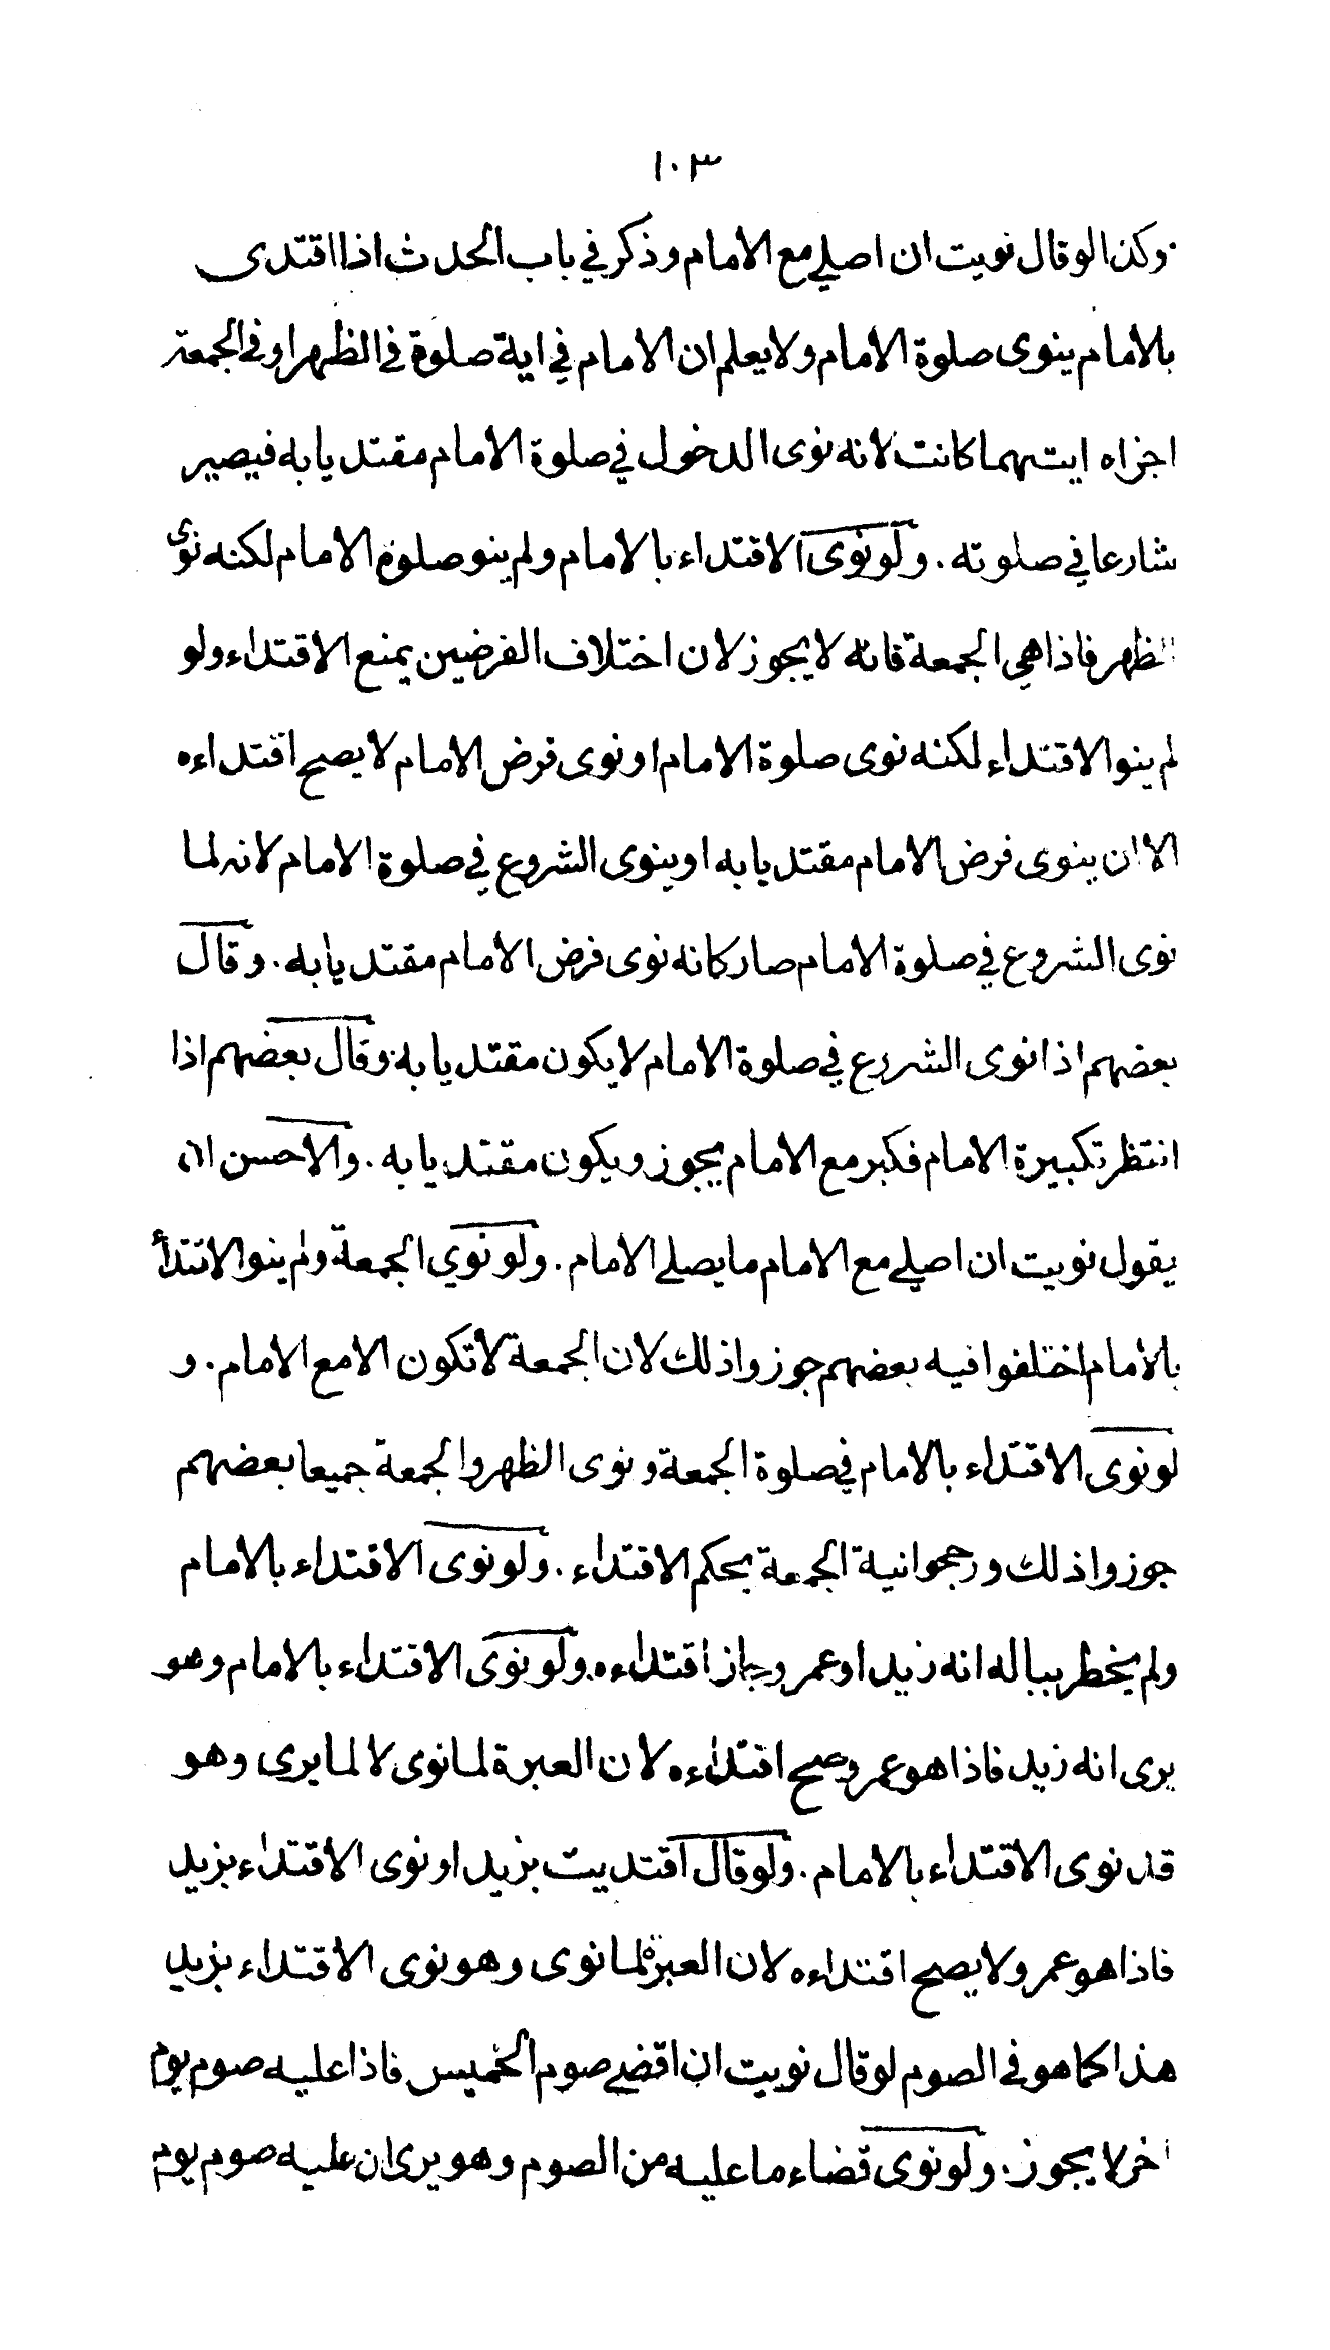 ١٠٣
وكذا لو قال نويت ان اصلي مع الامام وذكر في باب الحدث اذا اقتدى
بالامام ينوى صلوة الامام ولا يعلم ان الامام في اية صلوة في الظهر او في الجمعة
اجزاه ايتهما كانت لانه نوى الدخول في صلوة الامام مقتديا به فيصير
شارعا في صلوته . ولو نوى الاقتداء بالامام ولم ينو صلوة الامام لكنه نوى
الظهر فاذا هي الجمعة فانه لا يجوز لان اختلاف الفرضين يمنع الاقتداء ولو
لم ينو الاقتداء لكنه نوى صلوة الامام او نوى فرض الامام لا يصح اقتداءه
الا ان ينوى فرض الامام مقتديا به او ينوى الشروع في صلوة الامام لانه لما
نوى الشروع في صلوة الامام صار كانه نوى فرض الامام مقتديا به . وقال
بعضهم اذا نوى الشروع في صلوة الامام لا يكون مقتديا به . وقال بعضهم اذا
انتظر تكبيرة الامام فكبر مع الامام يجوز ويكون مقتديا به . والاحسن ان
يقول نويت ان اصلي مع الامام ما يصلي الامام . ولو نوي الجمعة ولم ينو الاقتدأ
بالامام اختلفوا فيه بعضهم جوزوا ذلك لان الجمعة لا تكون الا مع الامام . و
لو نوى الاقتداء بالامام في صلوة الجمعة ونوى الظهر والجمعة جميعا بعضهم
جوزوا ذلك ورجحوا نية الجمعة بحكم الاقتداء . ولو نوى الاقتداء بالامام
ولم يخطر بباله انه زيد او عمرو جاز اقتداءه . ولو نوى الاقتداء بالامام وهو
يرى انه زيد فاذا هو عمرو صح اقتداءه لان العبرة لما نوى لا لما يرى وهو
قد نوى الاقتداء بالامام . ولو قال اقتديت بزيد او نوى الاقتداء بزيد
فاذا هو عمرو لا يصح اقتداءه لان العبرة لما نوى وهو نوى الاقتداء بزيد
هذا كما هو في الصوم لو قال نويت ان اقضي صوم الخميس فاذا عليه صوم يوم
اخر لا يجوز . ولو نوى قضاء ما عليه من الصوم وهو يرى ان عليه صوم يوم